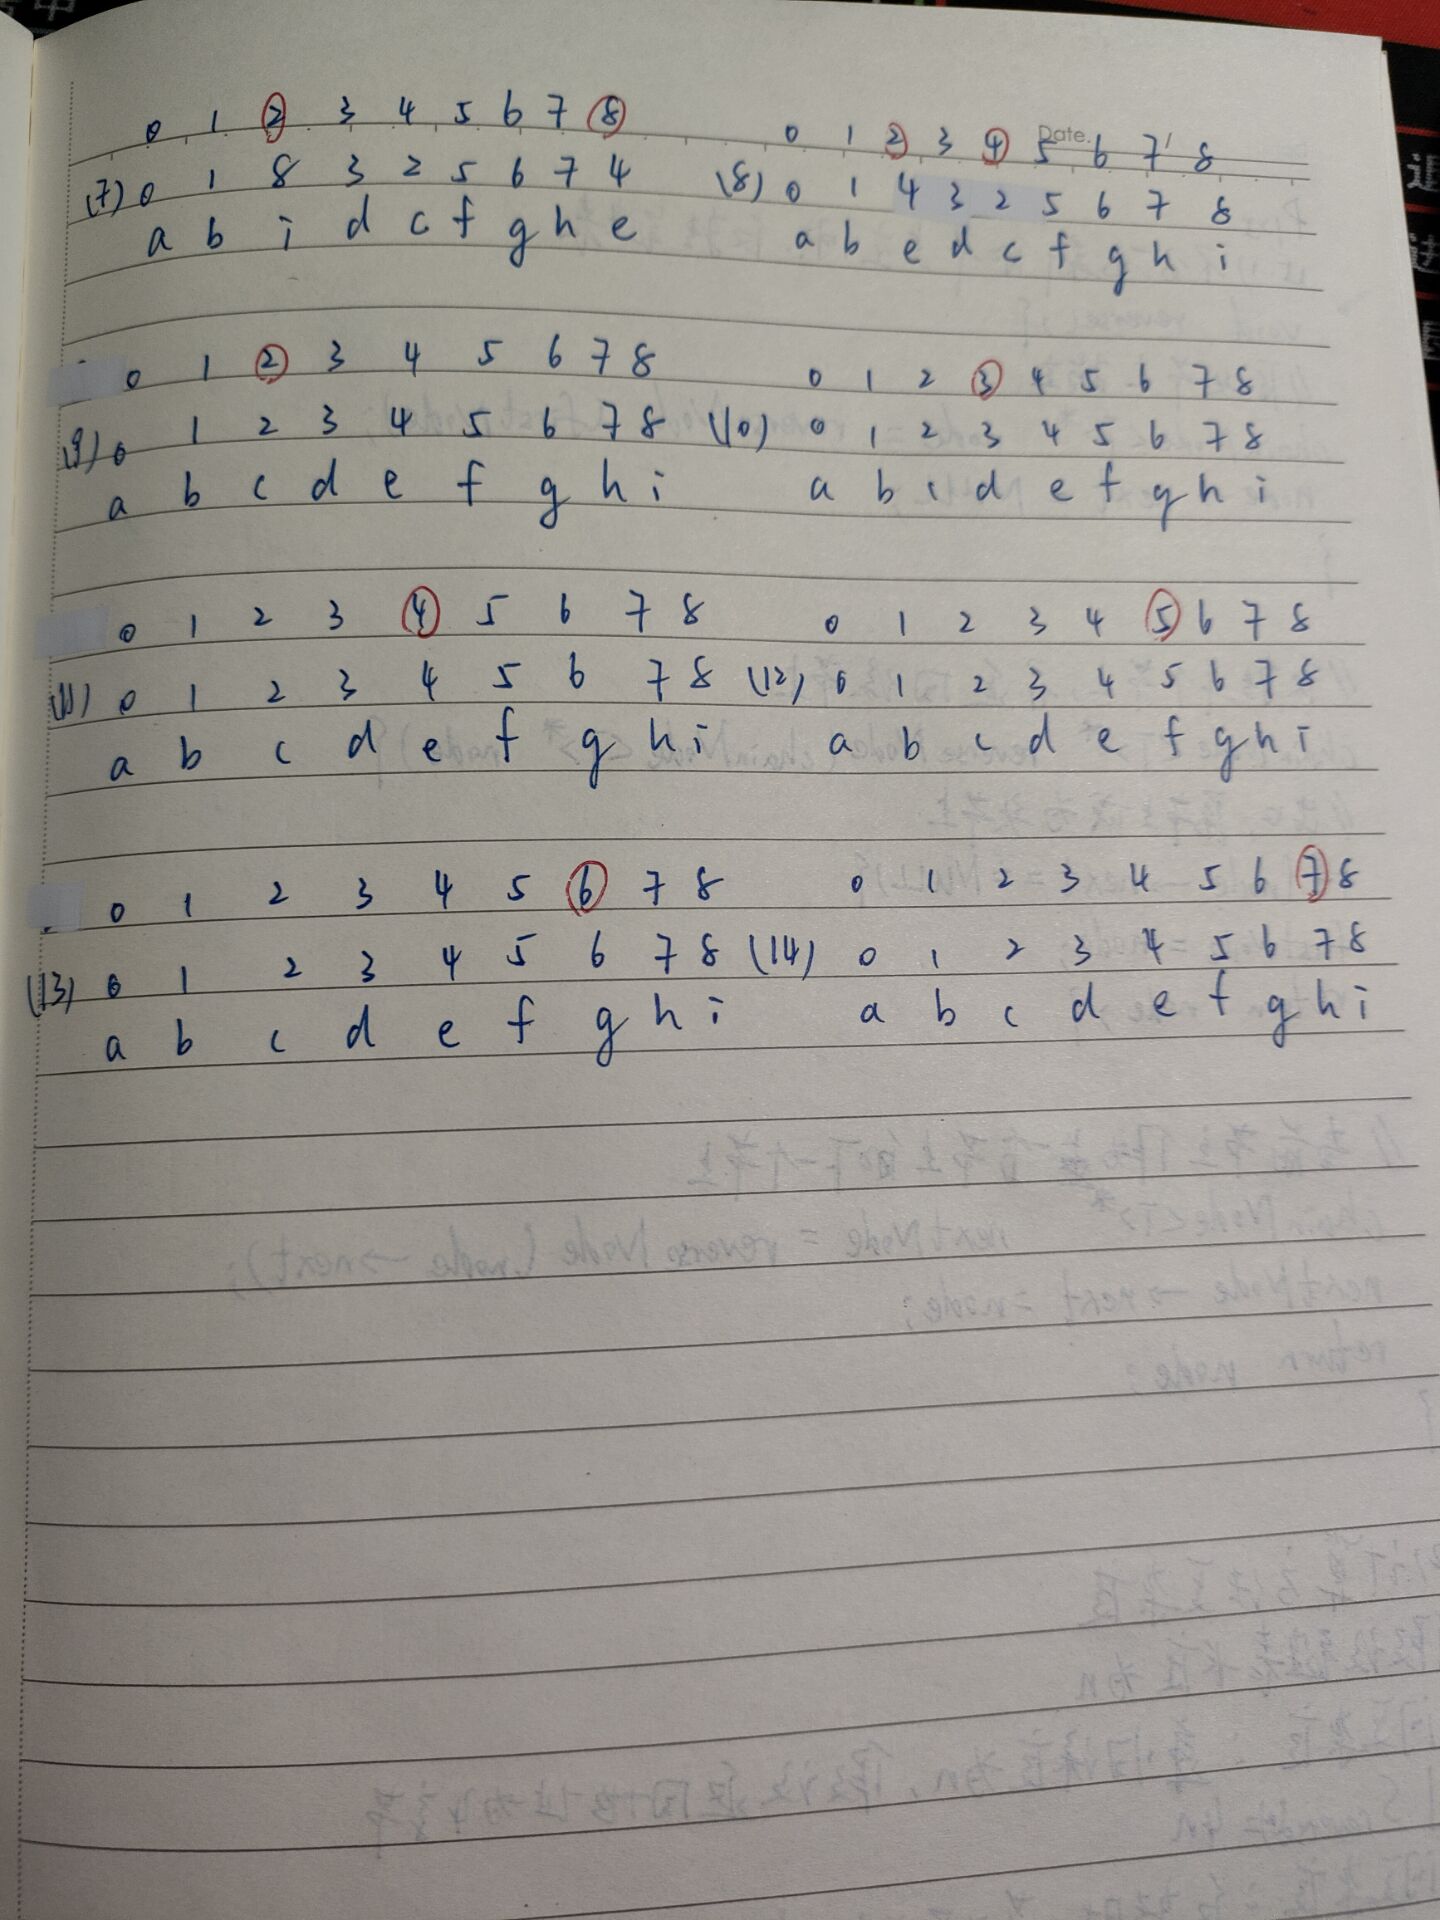 0 1 2 3 4 5 6 7 8
(7) 0 1 8 3 2 5 6 7 4
a b i d c f g h e
Date.
0 1 2 3 4 5 6 7 8
(8) 0 1 4 3 2 5 6 7 8
a b e d c f g h i
0 1 2 3 4 5 6 7 8
(9) 0 1 2 3 4 5 6 7 8
a b c d e f g h i
0 1 2 3 4 5 6 7 8
(10) 0 1 2 3 4 5 6 7 8
a b c d e f g h i
0 1 2 3 4 5 6 7 8
(11) 0 1 2 3 4 5 6 7 8
a b c d e f g h i
0 1 2 3 4 5 6 7 8
(12) 0 1 2 3 4 5 6 7 8
a b c d e f g h i
0 1 2 3 4 5 6 7 8
(13) 0 1 2 3 4 5 6 7 8
a b c d e f g h i
0 1 2 3 4 5 6 7 8
(14) 0 1 2 3 4 5 6 7 8
a b c d e f g h i